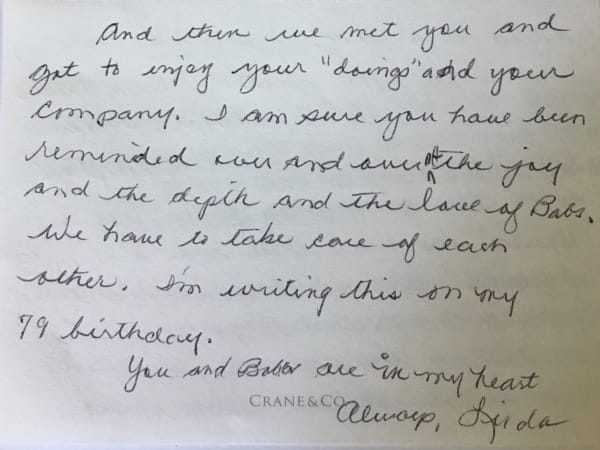 And then we met you and
got to enjoy your "doings" and your
company. I am sure you have been
reminded over and over of the joy
and the depth and the love of Babs.
We have to take care of each
other. I'm writing this on my
79 birthday.
You and Babs are in my heart
CRANE & CO
Always, Linda